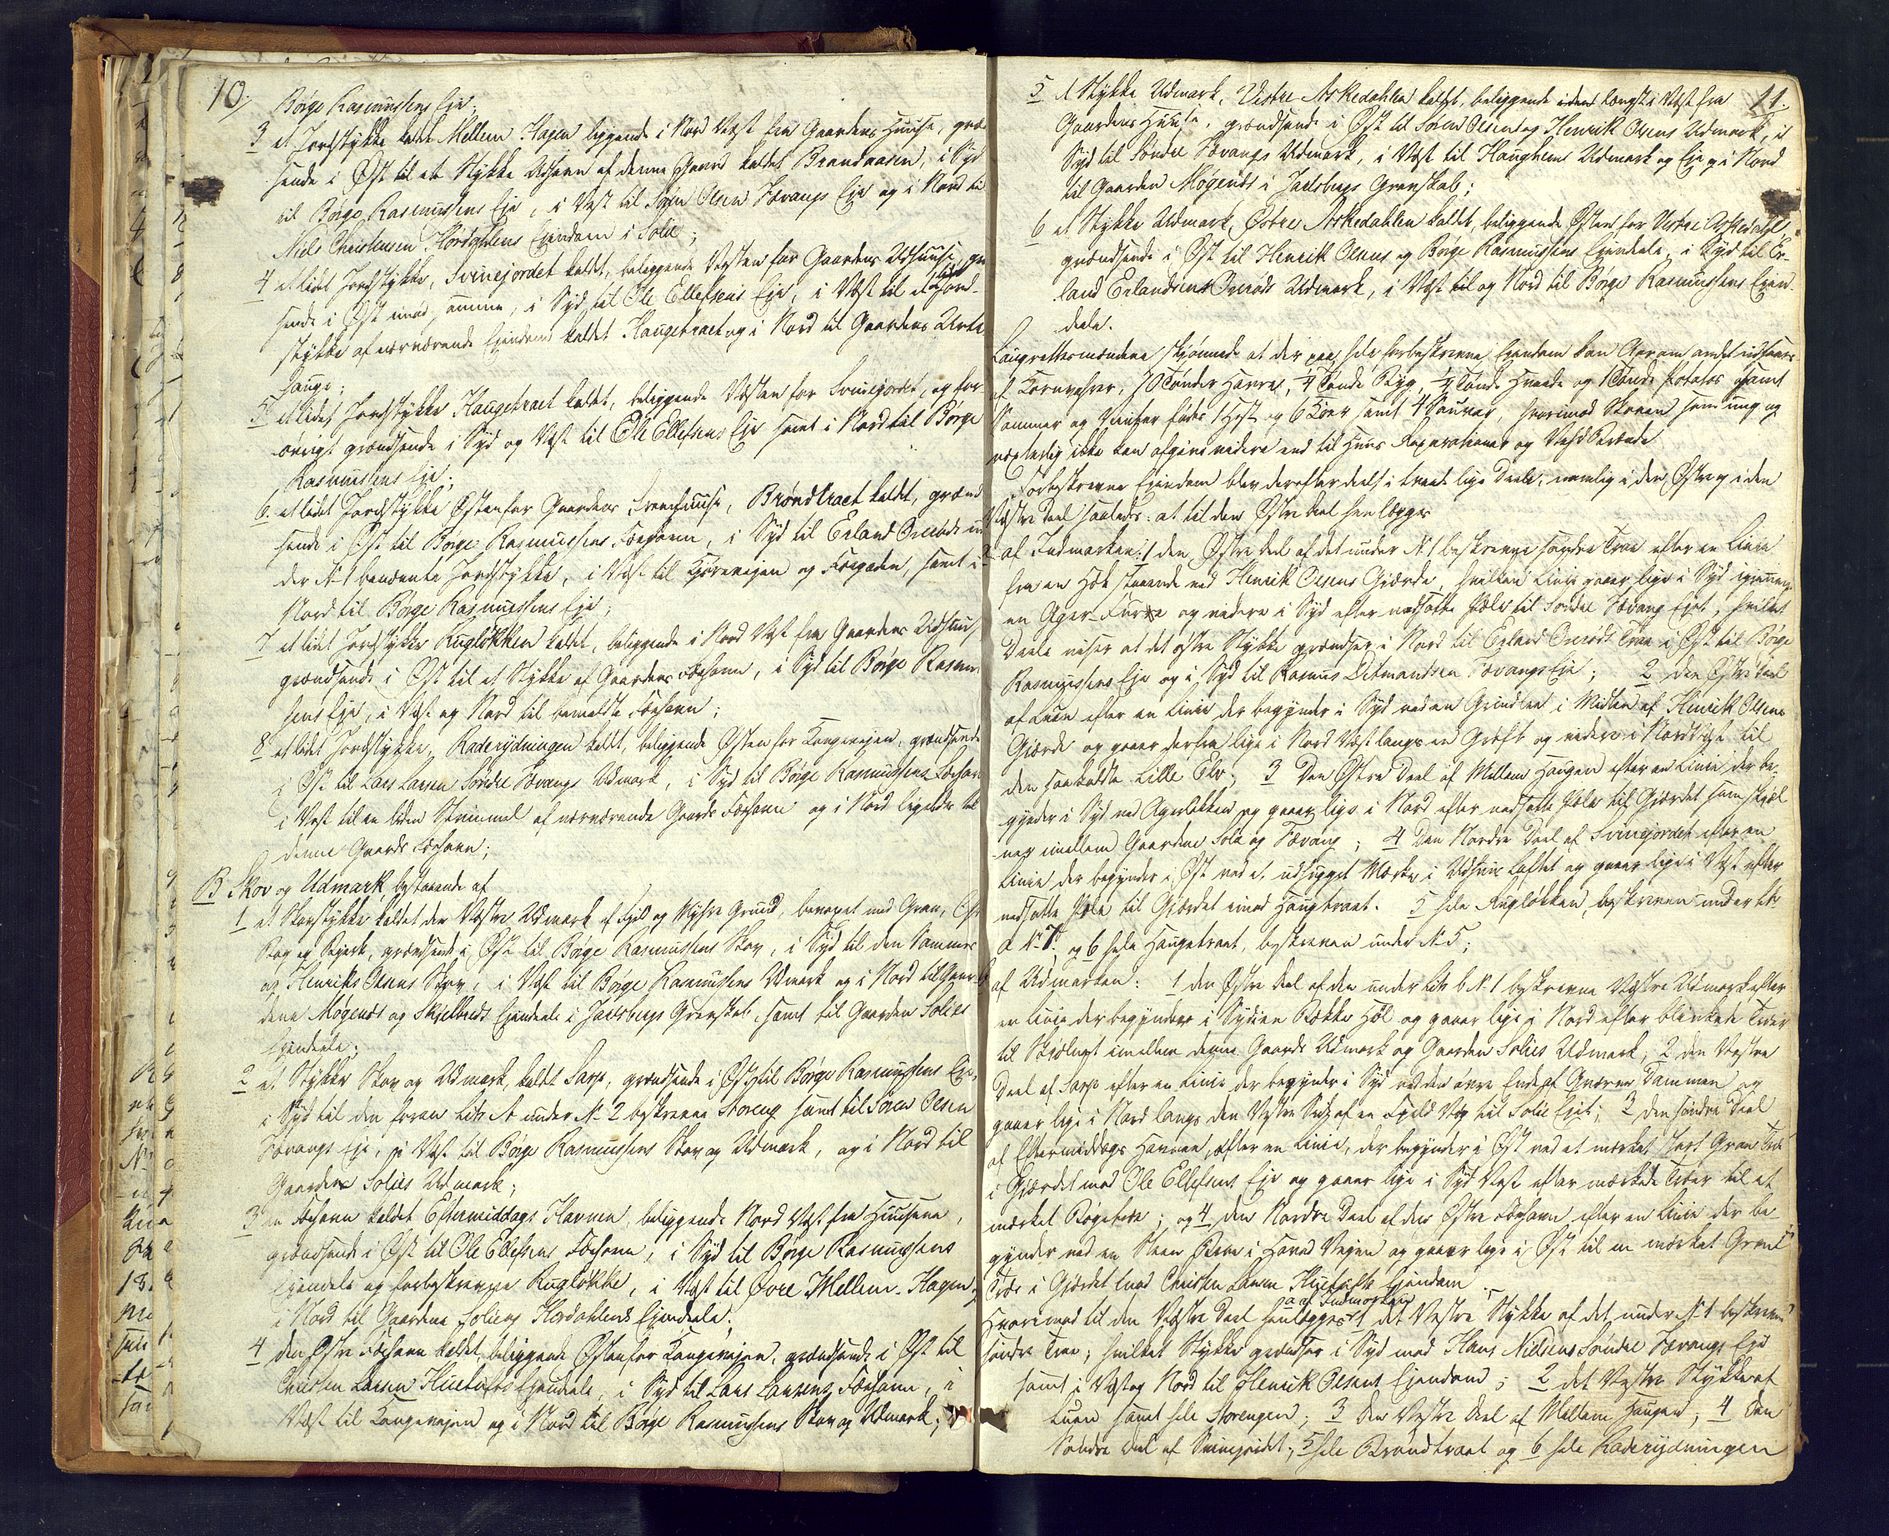 10/
Børge Rasmussens Eje;
3 et Jordstykke kaldt Mellem Hagen liggende i Nord Væst fra Gaardens Huuse, græn-
sende i Øst til et Stykke Udhavn af denne Gaard kaldet Brandaasen, i Syd
til Børge Rasmussens Eje, i Væst til Søren Olsen Tævangs Eje og i Nord til
Niels Christensen Hordahlens Ejendom i Solie;
4 et lidet Jordstykke, Svinejordet kaldt, beliggende Væsten for Gaardens Udhuuse, græn-
sende i Øst mod samme, i Syd til Ole Ellefsens Eje, i Væst til et Jord-
stykke af nærværende Ejendom kaldet Haugetraet og i Nord til Gaardens Urte
hauge;
5 et lidet Jordstykke Haugetraet kaldt, beliggende Væsten for Svinejordet, og for
øvrigt grændsende i Syd og Væst til Ole Ellefsens Eje samt i Nord til Børge
Rasmussens Eje;
6. et lidet Jordstykke Østen for Gaardens Huuse, Brøndtraet kaldt, grænd
sende i Øst til Børge Rasmussens Foehavn, i Syd til Erland Omsøds un
der No 1 benævnte Jordstykke, i Væst til Kjørevejen og Foegaden, samt i
Nord til Børge Rasmussens Eje;
7 et lidet Jordstykke Rugløkken kaldt, beliggende i Nord Væst fra Gaardens Udhuus
grændsende i Øst til et Stykke af Gaardens Foehavn, i Syd til Børge Rasmus
sens Eje, i Væst og Nord til bemeldte Foehavn;
8 et lidet Jordstykke, Raderydningen kaldt, beliggende Østen for Kongevejen, grændsende
i Øst til Lars Larsen Søndre Tævangs Udmark, i Syd til Børge Rasmussens Foehavn
i Væst til en liden Strimmel af nærværende Gaards Foehavn og i Nord ligeledes til
denne Gaards Foehavn;
B Skov og Udmark bestaaende af
1 et Skovstykke kaldet den Væstre Udmark af Fjeld og Myhre Grund, bevoxet med Gran, 
Skov og Birk, grændsende i Øst til Børge Rasmussens Skov, i Syd til den Sammes
og Henrik Olsens Skov, i Væst til Børge Rasmussens Udmark og i Nord til Gaar
dene Møgends og Skjelbreds Ejendeele i Jarlsbergs Grevskab, samt til Gaarden Solies
Ejendeele;
2 et Stykke Skov og Udmark, kaldt Sarp, grændsende i Øst til Børge Rasmussens Eje,
i Syd til den foran Litr A under No 2 beskrevne Storeng samt til Søren Olsen
Tævangs Eje, i Væst til Børge Rasmussens Skov og Udmark, og i Nord til
Gaarden Solies Udmark;
3 en Foehavn kaldet Eftermiddags Havnen, beliggende Nord Væst fra Huusene,
grændsende i Øst til Ole Ellefsens Foehavn, i Syd til Børge Rasmussens
Ejendele og forbeskrevne Rugløkke, i Væst til Øvre Mellem Hagen,
i Nord til Gaardene Soliens Hordahlends Ejendeele.
4 den Østre Foehavn kaldet, beliggende Østen for Kongevejen, grændsende i Øst til
Christen Larsen Huetufts Ejendeele, i Syd til Lars Larsens Foehavn, i
Væst til Kongevejen og i Nord til Børge Rasmussens Skov og Udmark;
11.
5 1 Stykke Udmark, Vestre Askedahlen kaldt, beliggende  længst i Væst fra
Gaardens Huuse, grændsende i Øst til Søren Olsens og Henrik Olsens Udmark, i
Syd til Søndre Tævangs Udmark, i Væst til Haughems Udmark og Eje og i Nord
til Gaarden Møgends i Jarlsbergs Grevskab;
6 et Stykke Udmark, Østre Askedahlen kaldt, beliggende Østen for Vestre Askedahl,
grændsende i Øst til Henrik Olsens og Børge Rasmussens Ejendeele, i Syd til Er-
land Erlandsens Omsøds Udmark, i Væst til og Nord til Børge Rasmussens Ejen-
dele.
Laugrettesmændene skjønnede at der paa hele forbeskrevne Ejendom kan Aarom andet udsaaes
af Kornvahrer, 10 Tønder Havre, 1/4 Tønde Byg, 1/4 Tønde Hvede og 1 Tønde Potatos samt
Sommer og Vinter fødes 1 Hest og 6 Køer samt 4 Sauver, hvorimod Skoven som ung og
 ikke kan afgive videre end til Huus Reparationer og Vedbrænde
Forbeskrevne Ejendom blev derefter deelt i tvende lige Deele, nemlig i den Østre og i den
Væstre Deel saaledes: at til den Østre Deel henlægges
af Indmarken: 1 den Østre Deel af det under No 1 beskrevne søndre Trae efter en Linie
fra en Hæk staaende ved Henrik Olsens Gjærde, hvilken Linie gaaer lige i Syd igjennem
en Ager Fure og videre i Syd efter nedsatte Pæle til Søndre Tævang Ejet, hvilket
Deele viser at det østre Stykke grændser i Nord til Erland Omsøds Trae i Øst til Børge
Rasmussens Eje og i Syd til Rasmus Ditmandsen Tævangs Eje; 2 den Østre Deel
af Luen efter en Linie der begynder i Syd ved en Grindlee i Midten af Henrik Olsens
Gjærde og gaaer derfra lige i Nord Væst langs en Grøft og videre i Nord til
den saakaldte Lille Elv; 3 Den Østre Deel af Mellem Haugen efter en Linie der be-
gynder i Syd ved Agerløkken og gaaer lige i Nord efter nedsatte Pæle til Gjærdet som skjæl
ner imellem Gaardene Solie og Tævang; 4 Den Nordre Deel af Svinejordet efter en
Linie der begynder i Øst ved et udhugget Mærke i Udhuus Loftet og gaaer lige i Væst efter
nedsatte Pæle til Gjærdet imod Haugtraet. 5 hele Rugløkken, beskreven under Litr
a No 7. og 6 hele Haugetraet, beskreven under No 5;
af Udmarken: 1 den Østre Deel af den under Litr b No 1 beskrevne Væstre Udmark efter
en Linie der begynder i Syd i en Rokke Høl og gaaer lige i Nord efter blinkede Træer
til Skjelnet imellem denne Gaards Udmark og Gaarden Solies Udmark, 2 den Væstre
Deel af Sarp efter en Linie der begynder i Syd ved den øvre Ende af Qværne Dammen og
gaaer lige i Nord langs den Væstre Side af en Fjeld Væg til Solie Ejet; 3 den søndre Deel
af Eftermiddags Havnen, efter en Linie, der begynder i Øst ved et mærket stort Gran Træ
i Gjærdet mod Ole Ellefsens Eje og gaaer lige i Syd Væst efter mærkede Træer til et
mærket Rognetræ; og 4 den Nordre Deel af den Østre Foehavn efter en Linie der be-
gynder ved en Steen  i Hoved Vejen og gaaer lige i Øst til en mærket Gran
Træe i Gjærdet imod Christen Larsen Huetufts Ejendom
Hvorimod til den Væstre Deel henlægges a af Indmarken 1 det Væstre Stykke af det under No 1 beskrevne
søndre Trae, hvilket Stykke grændser i Syd mod Hans Nielsens Søndre Tævangs Eje
samt i Væst og Nord til Henrik Olsens Ejendom; 2 det Væstre Stykke af
Luen samt hele Storengen; 3 den Væstre Deel af Mellem Haugen, 4 den
Søndre Deel af Svinejordet; 5 hele Brøndtraet og 6 hele Raderydningen